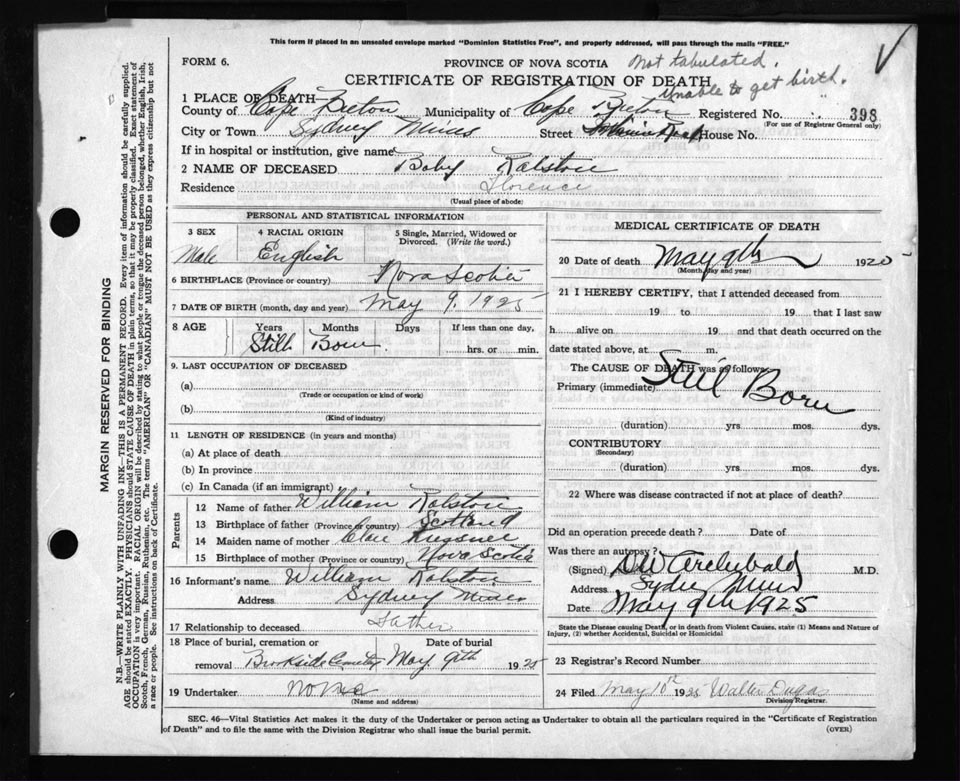 This form if placed in an unsealed envelope marked "Dominion Statistics Free", and property addressed, will pass through the mails "FREE."
FORM 6.
PROVINCE OF NOVA SCOTIA
Not tabulated.
CERTIFICATE OF REGISTRATION OF DEATH
Unable to get birth.
1 PLACE OF DEATH—
County of Cape Breton Municipality of Cape Breton Registered No. 398
(For use of Registrar General only)
City or Town Sydney Mines Street House No.
If in hospital or institution, give name
2 NAME OF DECEASED Baby Ralston
Residence Florence
(Usual place of abode)
PERSONAL AND STATISTICAL INFORMATION
3 SEX 4 RACIAL ORIGIN 5 Single, Married, Widowed or Divorced. (Write the word.)
Male English
6 BIRTHPLACE (Province or country) Nova Scotia
7 DATE OF BIRTH (month, day and year) May 9. 1925
8 AGE Years Months Days If less than one day,
Still Born. hrs. or min.
9. LAST OCCUPATION OF DECEASED
(a)
(Trade or occupation or kind of work)
(b)
(Kind of industry)
11 LENGTH OF RESIDENCE (in years and months)
(a) At place of death
(b) In province
(c) In Canada (if an immigrant)
Parents
12 Name of father William Ralston
13 Birthplace of father (Province or country) Scotland
14 Maiden name of mother
15 Birthplace of mother (Province or country) Nova Scotia
16 Informant's name William Ralston
Address Sydney Mines
17 Relationship to deceased Father
18 Place of burial, cremation or removal Date of burial
Brookside Cemetery May 9th 1925
19 Undertaker None
(Name and address)
MEDICAL CERTIFICATE OF DEATH
20 Date of death May 9th 1925
(Month, day and year)
21 I HEREBY CERTIFY, that I attended deceased from
19 to 19 that I last saw
h alive on 19 and that death occurred on the
date stated above, at m.
The CAUSE OF DEATH was as follows:
Primary (immediate) Still Born
(duration) yrs. mos. dys.
CONTRIBUTORY
(Secondary)
(duration) yrs. mos. dys.
22 Where was disease contracted if not at place of death?
Did an operation precede death? Date of
Was there an autopsy?
(Signed) Archibald M.D.
Address Sydney Mines
Date May 9th 1925
State the Disease causing Death, or in death from Violent Causes, state (1) Means and Nature of
Injury, (2) whether Accidental, Suicidal or Homicidal
23 Registrar's Record Number
24 Filed May 10th 1925 Walter Dugas
Division Registrar.
SEC. 46—Vital Statistics Act makes it the duty of the Undertaker or person acting as Undertaker to obtain all the particulars required in the "Certificate of Registration
of Death" and to file the same with the Division Registrar who shall issue the burial permit.
(OVER)
MARGIN RESERVED FOR BINDING
N.B.—WRITE PLAINLY WITH UNFADING INK—THIS IS A PERMANENT RECORD. Every item of information should be carefully supplied.
AGE should be stated EXACTLY. PHYSICIANS should STATE CAUSE OF DEATH in plain terms, so that it may be properly classified. Exact statement of
OCCUPATION is very important. RACIAL ORIGIN will be described by stating to what people or tongue the deceased person belonged, whether English, Irish,
Scotch, French, German, Russian, Ruthenian, etc. The terms "AMERICAN" or "CANADIAN" MUST NOT BE USED as they express citizenship but not
a race or people. See instructions on back of Certificate.